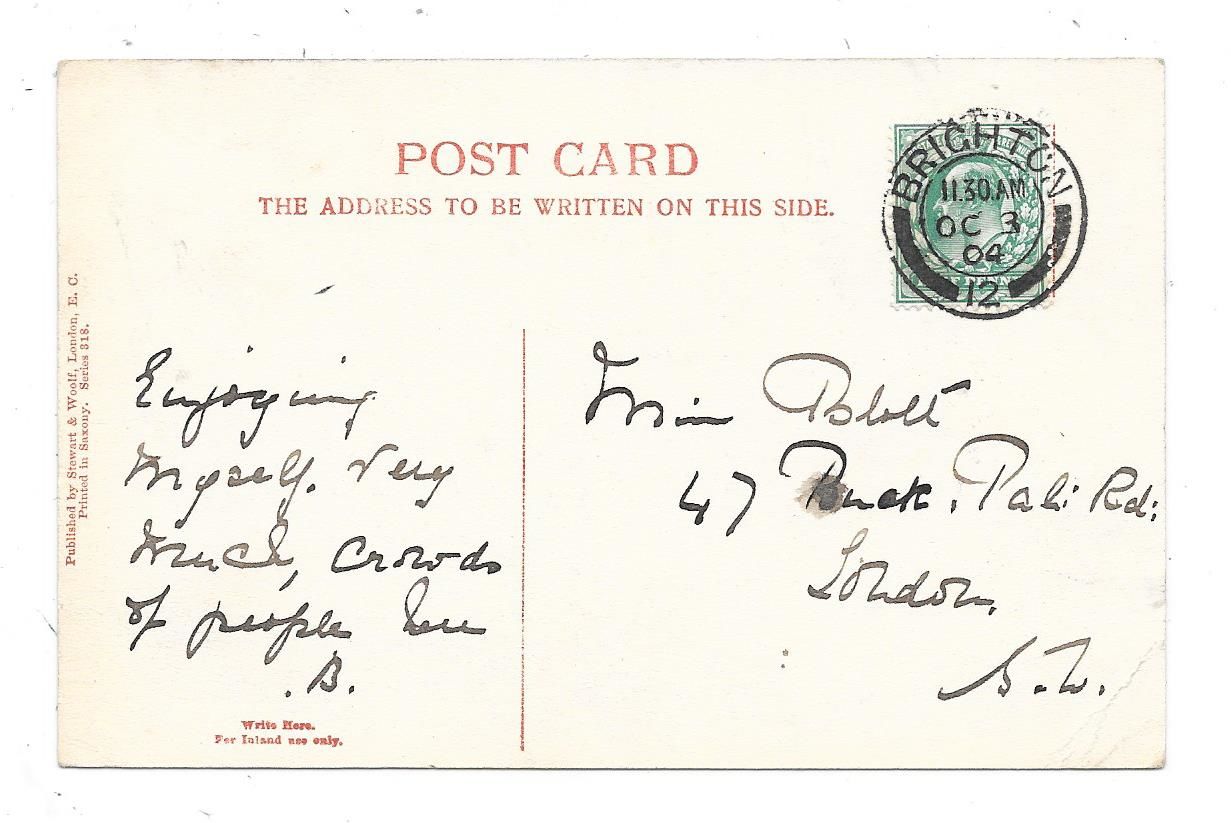 POST CARD
THE ADDRESS TO BE WRITTEN ON THIS SIDE.
BRIGHTON
11.30 AM
OC 3
04
12
Published by Stewart & Woolf, London, E. C.
Printed in Saxony. Series 318.
Enjoying
Myself. Very
Much, Crowds
of people here
. B.
Write Here.
For Inland use only.
Miss
47 Buck. Pal: Rd:
London,
S.W.